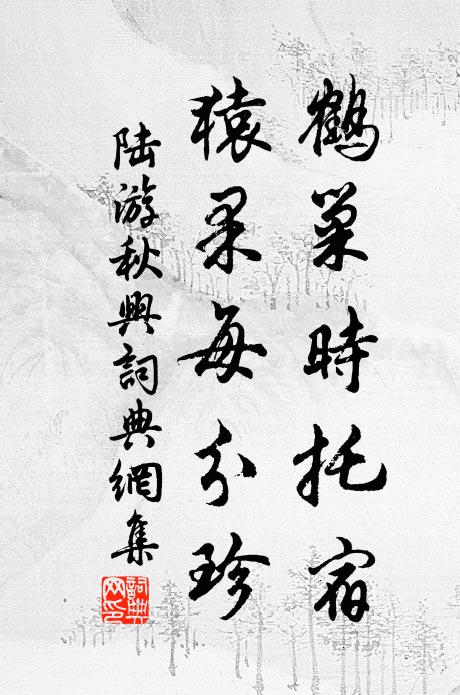 鶴巢時托宿
猿果每分珍
陸游秋興詞典網集
詞典网印